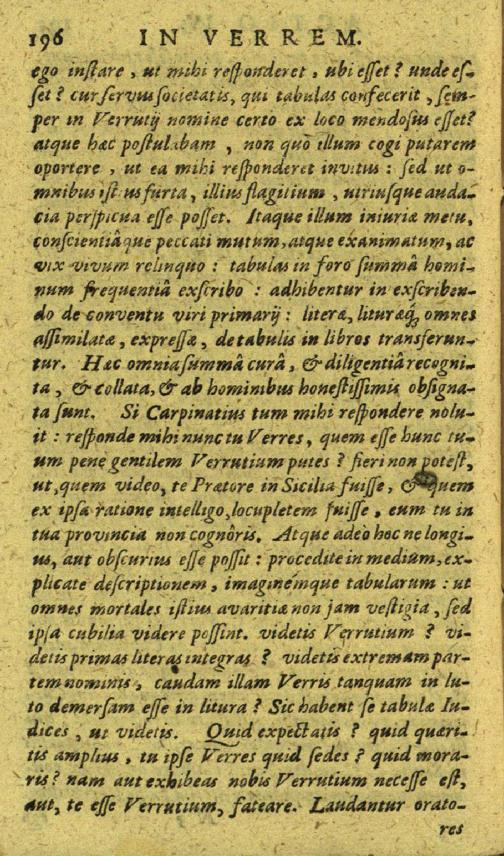 196 IN VERREM.
ego inſtare, ut mihi reſponderet, ubi eſſet? unde eſ-
ſet? cur ſervus ſocietatis, qui tabulas confecerit, ſem-
per in Verrutij nomine certo ex loco mendoſus eſſet?
atque hæc poſtulabam, non quò illum cogi putarem
oportere, ut ea mihi reſponderet invitus: ſed ut o-
mnibus iſtius furta, illius flagitium, utriuſque auda-
cia perſpicua eſſe poſſet. Itaque illum iniuriæ metu,
conſcientiâque peccati mutum, atque exanimatum, ac
vix vivum relinquo: tabulas in foro ſummâ homi-
num frequentiâ exſcribo: adhibentur in exſcriben-
do de conventu viri primarij: literæ, lituræq́; omnes
aſſimilatæ, expreſſæ, de tabulis in libros transferun-
tur. Hæc omnia ſummâ curâ, & diligentiâ recogni-
ta, & collata, & ab hominibus honeſtiſſimis obſigna-
ta ſunt. Si Carpinatius tum mihi reſpondere nolu-
it: reſponde mihi nunc tu Verres, quem eſſe hunc tu-
um penè gentilem Verrutium putes? fieri non poteſt,
ut, quem video, te Prætore in Sicilia fuiſſe, & quem
ex ipſa ratione intelligo, locupletem fuiſſe, eum tu in
tua provincia non cognôris. Atque adeò hoc ne longi-
us, aut obſcurius eſſe poſſit: procedite in medium, ex-
plicate deſcriptionem, imaginemque tabularum: ut
omnes mortales iſtius avaritiæ non jam veſtigia, ſed
ipſa cubilia videre poſſint. videtis Verrutium? vi-
detis primas literas integras? videtis extremam par-
tem nominis, caudam illam Verris tanquam in lu-
to demerſam eſſe in litura? Sic habent ſe tabulæ Iu-
dices, ut videtis. Quid expectatis? quid quæri-
tis amplius, tu ipſe Verres quid ſedes? quid mora-
ris? nam aut exhibeas nobis Verrutium neceſſe eſt,
aut, te eſſe Verrutium, fateare. Laudantur orato-
res